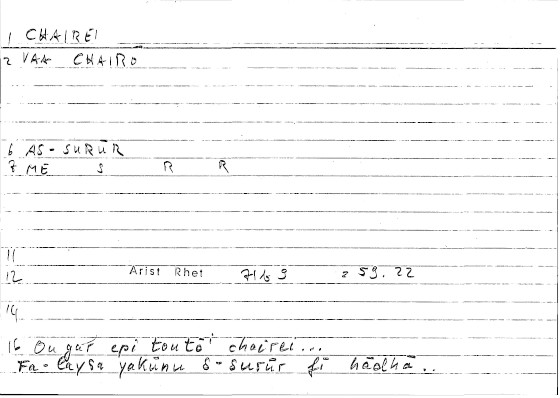 1 CHAIREI
2 VAA CHAIRŌ
6 AS-SURŪR
7 ME S R R
11
12 Arist Rhet 71b9 = 59.22
14
16 Ou gar epi toutōi chairei...
Fa-laysa yakūnu s-surūr fī hādhā..